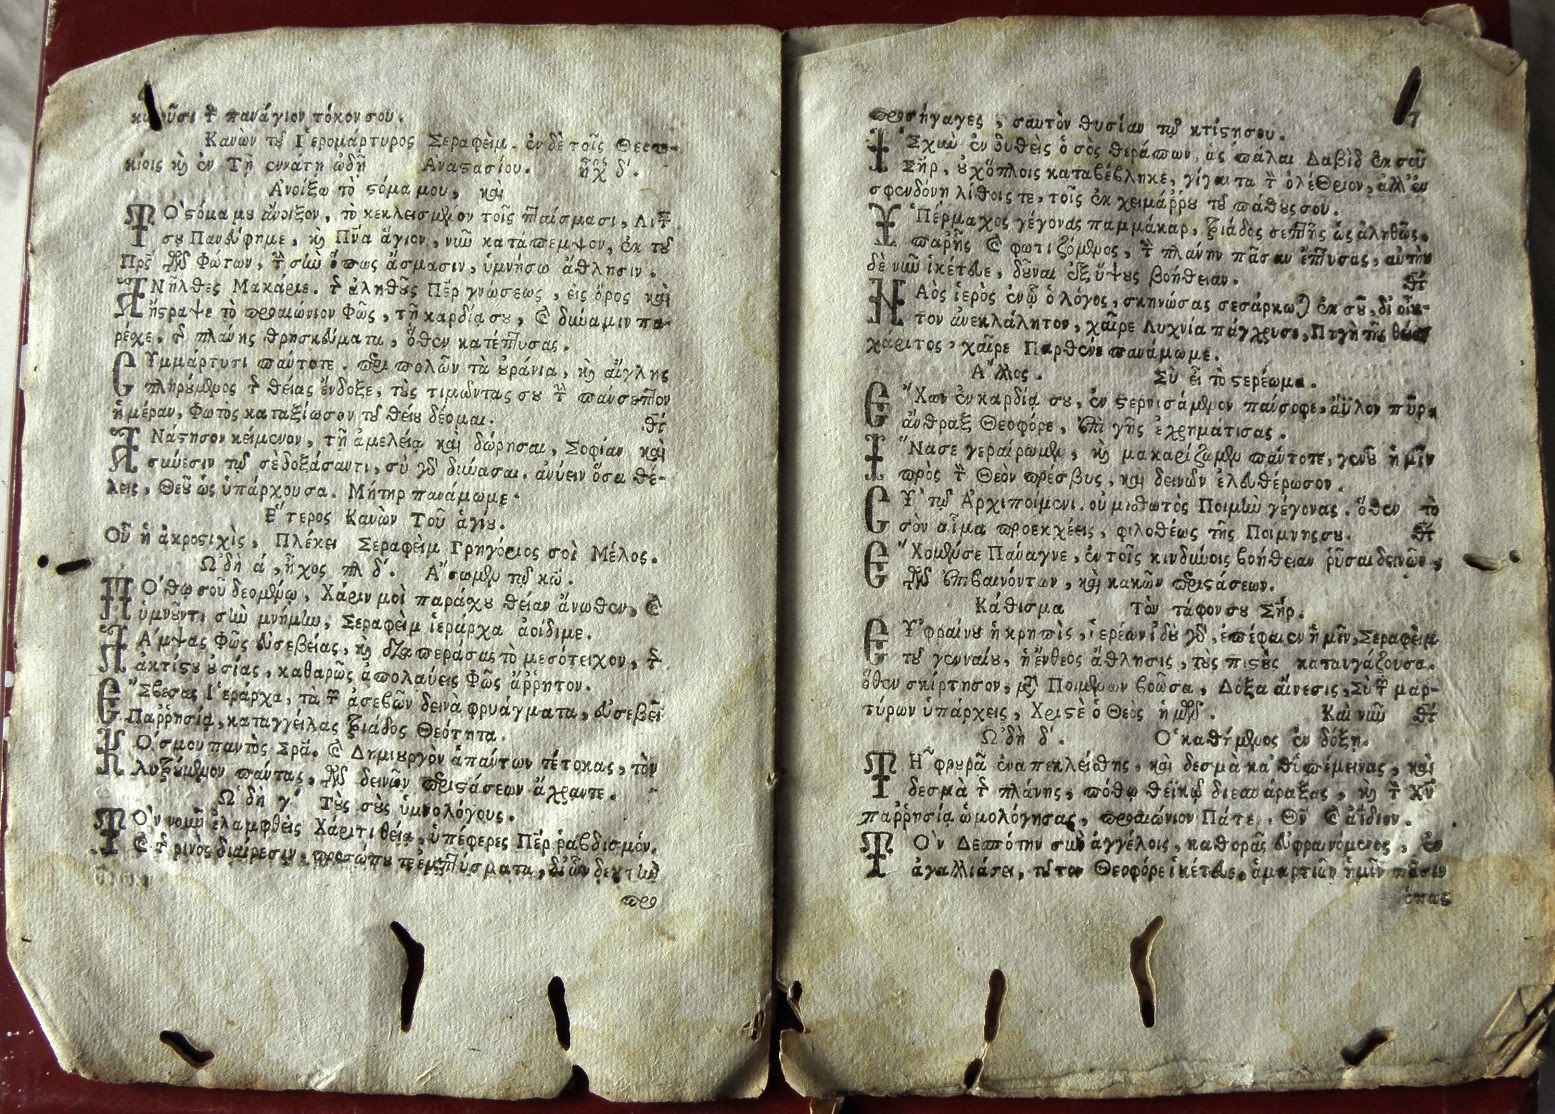 πανάγιον τόκον σου.
Κανὼν τοῦ Ἱερομάρτυρος Σεραφεὶμ. ἐν δὲ τοῖς Θεοτο-
κίοις κὶ ἐν Τῇ ἐννάτῃ ὠδῇ Ἀναϛασίου. ἦχος δ΄.
Ἀνοίξω τὸ ϛόμα μου, καὶ
ΤΟ ϛόμα μȣ ἄνοιξον, τὸ κεκλεισμένον τοῖς πταίσμασι,
σȣ Πανεύφημε, κὶ Πνεῦμα ἅγιον, νῦν κατάπεμψον, ἐκ τȣ
Πατρὸς τῶν Φώτων, σὴν ὅπως ἄσμασιν, ὑμνήσω ἄθλησιν.
ΑΝῆλθες Μακάριε. τῆς ἀληθοῦς Πάτερ γνώσεως, εἰς ὄρος καὶ
ἤϛραψε τὸ προαιώνιον Φῶς, τῇ καρδίᾳ σȣ, καὶ δύναμιν πα-
ρέχε, τῆς πλάνης θρησκεύματα, ὅθεν κατέπτυσας.
ΣΥμμάρτυσι πάντοτε. περιπολῶν τὰ ȣράνια, κὶ αἴγλης
πληρούμενος τῆς θείας ἔνδοξε, τȣς τιμῶντας σȣ τὴν πάνσεπτον
ἡμέραν, Φωτὸς καταξίωσον τȣ θείȣ δέομαι.
ΑΝάϛησον κείμενον, τῇ ἀμελείᾳ καὶ δώρησαι, Σοφίαν καὶ
σύνεσιν τῷ σὲ δοξάσαντι, σὺ γὰρ δύνασαι. ἀνύειν ὅσα θέ-
λεις, Θεȣ ὡς ὑπάρχουσα. Μήτηρ πανάμωμε.
Ἕτερος Κανὼν Τοῦ ἁγίȣ.
Οὗ ἡ ἀκροϛιχὶς, Πλέκει Σεραφεὶμ Γρηγόριος σοὶ Μέλος.
Ὠδὴ ά, ἦχος πλ δ΄. ᾌσωμεν τῷ κω.
ΠΟθῳ σοῦ δεομένῳ, Χάριν μοὶ παράχου θείαν ἄνωθεν, καὶ
ὑμνοῦντι σὴν μνήμην, Σεραφεὶμ ἱεράρχα ἀοίδιμε.
ΛΑμψας Φῶς εὐσεβείας, κὶ διαπεράσας τὸ μεσότειχον, τῆς
ἀκτίϛου οὐσίας, καθαρῶς ἀπολαύεις Φῶς ἄῤῥητον.
ΕΣβεσας Ἱεράρχα, τὰ τῶν ἀσεβῶν δεινὰ φρυάγματα, εὐσεβεῖ
Παῤῥησίᾳ, καταγγείλας Τριάδος Θεότητα.
ΚΟσμου παντὸς Σωτῆρα. καὶ Δημιουργὸν ἁπάντων τέτοκας, τὸν
λυτρούμενον πάντας, ἐκ τῶν δεινῶν περιϛάσεων ἄχραντε.
Ὠδὴ γ΄. Τȣς σȣς ὑμνολόγους.
ΤΟν νοῦν ἐλαμφθεὶς Χάριτι θείᾳ, ὑπέφερες Πάτερ ῥαβδισμόν,
καὶ ῥινὸς διαίρεσιν, προσώπȣ τε ἐμπτύσματα, δι' ὧν δευτέραν
προ
προσήγαγες, σαυτὸν θυσίαν τῷ κτίϛῃ σου. 7
ΙΣχὺν ἐνδυθεὶς ὁ σὸς θεράπων, ὡς πάλαι Δαβὶδ ἐκ σοῦ
Σῆρ, οὐχ ὅπλοις καταβέβληκε, γίγαντα τὸν ὀλέθριον, ἀλλ' ἐν
σφενδόνῃ λίθοις τε, τοῖς ἐκ χειμάῤῥȣ τȣ πάθȣς σοῦ.
ΥΠέρμαχος γέγονας παμμάκαρ, Τριάδος σεπτῆς ὡς ἀληθῶς,
παρ' ἧς καὶ φωτιζόμενος, τὴν πλάνην πᾶσαν ἔπτυσας, αὐτὴν
δὲ νῦν ἱκέτευε, δοῦναι ἐξ ὕψους βοήθειαν.
ΝΑὸς ἱερὸς ἐν ᾧ ὁ λόγος, σκηνώσας σεσάρκωται ἐκ σοῦ, δι' οἶκ-
τον ἀνεκλάλητον, χαῖρε Λυχνία πάγχρυσε, Πηγὴ τῆς θείας
χάριτος, χαῖρε Παρθένε πανάμωμε.
Ἄλλος. Σὺ εἶ τὸ ϛερέωμα.
ΕΧων ἐν καρδίᾳ σου, ἐνϛερνισάμενον πάνσοφε, ἄϋλον πῦρ,
ἄνθραξ Θεοφόρε, ἐπὶ γῆς ἐχρημάτισας.
ΙΝα σε γεραίρωμεν, κὶ μακαρίζωμεν πάντοτε, γενοῦ ἡμῖν
πρὸς τὸν Θεὸν πρέσβυς, καὶ δεινῶν ἐλευθέρωσον.
ΣΥ τῷ Ἀρχιποίμενι. οὐ μισθωτὸς Ποιμὴν γέγονας. ὅθεν τὸ
σὸν αἷμα προεκχέεις, φιλοθέως τῆς Ποίμνης σȣ.
ΕΧομέν σε Πάναγνε, ἐν τοῖς κινδύνοις βοήθειαν ῥῦσαι δεινῶν,
ἐπεμβαινόντων, καὶ κακῶν περιϛάσεων.
Κάθισμα Τὸν τάφον σου Σῆρ.
ΕΥφραίνου ἡ κρηπὶς, ἱερέων ἰδοὺ γὰρ, ἐπέφανεν ἡμῖν, Σεραφεὶμ
τȣ γενναίȣ, ἡ ἔνθεος ἄθλησις, τȣς πιϛȣς καταυγάζουσα.
ὅθεν σκίρτησον, μετὰ Ποιμένων βοῶσα, Δόξα αἴνεσις, Σὺ τῶν μαρ-
τύρων ὑπάρχεις, Χριϛὲ ὁ Θεὸς ἡμῶν. Καὶ νῦν
Ὠδὴ δ΄. Ὁ καθήμενος ἐν δόξῃ.
ΤΗ φρȣρᾷ ἐναπεκλείσθης, καὶ δεσμὰ καθυπέμεινας, καὶ
δεσμὰ τῆς πλάνης, πόθῳ θεϊκῷ διεσπάραξας, κὶ τὸν Χν
παῤῥησίᾳ ὡμολόγησας, προαιώνιον Πάτερ, Θν καὶ ἀΐδιον.
ΤΟν Δεσπότην σὺν ἀγγέλοις, καθορᾷς εὐφραινόμενος, ἐν
ἀγαλλιάσει, τȣτον Θεοφόρε ἱκέτευε, ἁμαρτιῶν ἡμῖν πᾶσιν